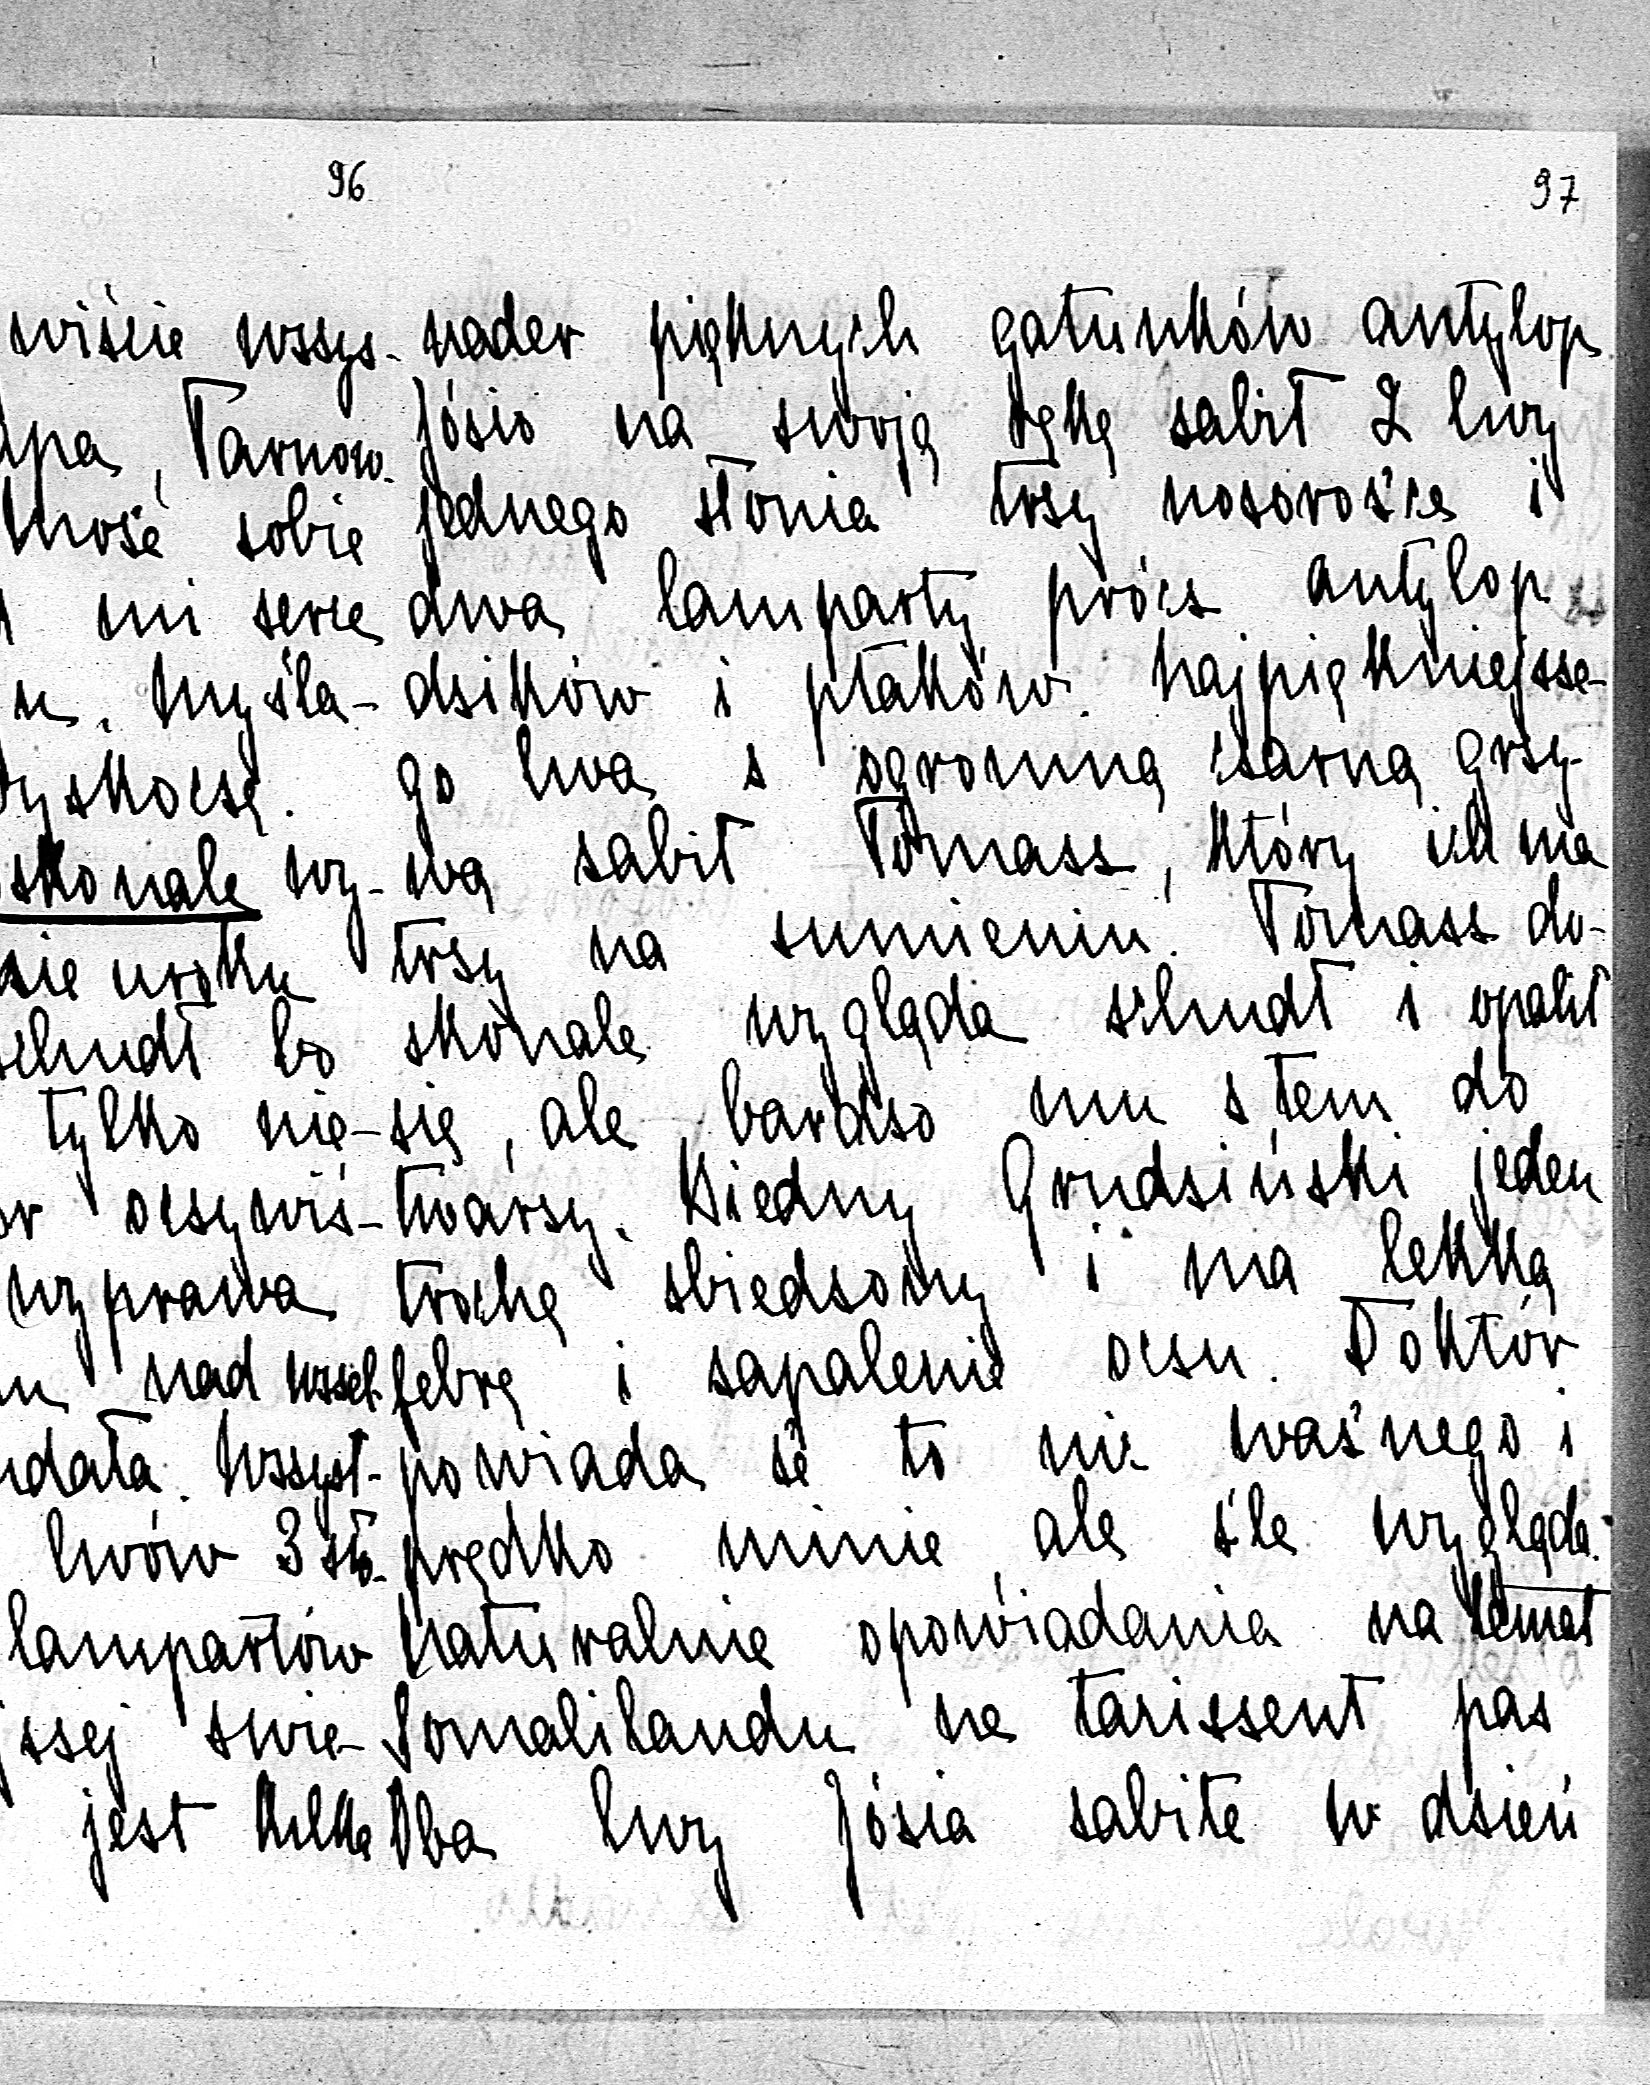 96
wiście wszys-
Tarnow-
sobie
mi serce
Myśla-
skonale wy-
uroku
schudł bo
tylko nie-
oczywiś-
wyprawa
nad wszel-
udała. Wszyst-
lwów 3 sło-
lampartów
szej zwie-
jest kilka
97
nader pięknych gatunków antylop
Józio na swoją rękę zabił 2 lwy
jednego słonia trzy nosorożce i
dwa lamparty prócz antylop
dzików i ptaków. Najpiękniejsze-
go lwa z ogromną czarną grzy-
wą zabił Tomasz, który ich ma
trzy na sumieniu. Tomasz do-
skonale wygląda schudł i opalił
się, ale bardzo mu z tem do
twarzy. Biedny Grudziński jeden
trochę zbiedzony i ma lekką
febrę i zapalenie oczu. Doktór
powiada że to nic ważnego i
prędko minie, ale źle wygląda.
Naturalnie opowiadania na temat
Somalilandu ne tarissent pas
Oba lwy Józia zabite w dzień